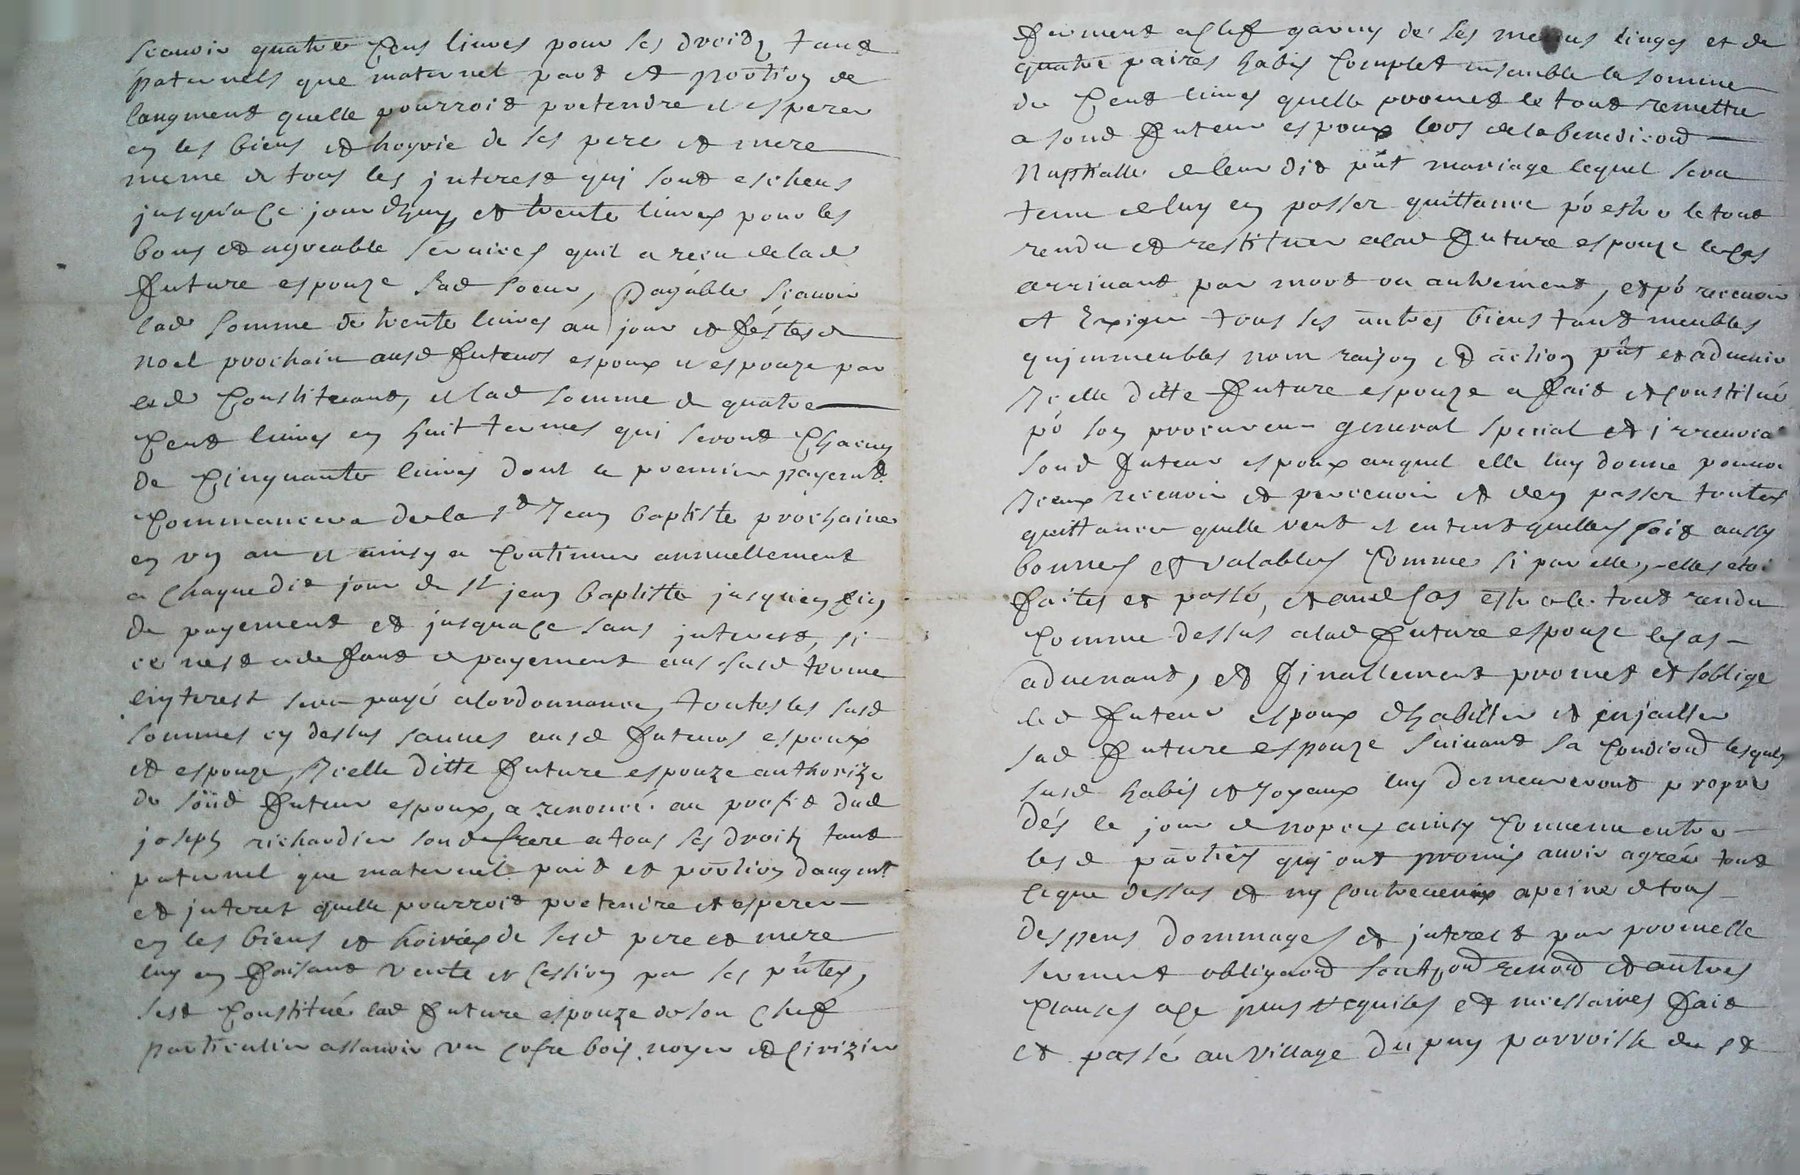 scauoir quatre Cens liures pour ses droidz tand
paternels que maternel pard et portion de
laugment quelle pourroid pretendre et esperer
en les biens et hoyrie de ses pere et mere
meme de tous les jnterest quj sond escheus
jusqua ce jourdhuy et trente liures pour les
bons et agreable seruices quil a receu de lad
future espouze sad soeur, payable scauoir
lad somme de trente liures au jour et festes de
noel prochain ausd futeurs espoux et espouze par
led Constituand, et lad somme de quatre
Cent liures en huit termes qui serond Chacun
de Cinquante liures dont le premier payemt
Commancera de la st Jean baptiste prochaine
en vn an et ainsy a Continuer annuellement
a Chaque dit jour de st jean baptiste jusquen fin
de payement et jusqua ce sans jnterest, si
ce nest a defaut de payement aus susd terme
linterest sera payé a lordonnance, toutes les susd
sommes cy dessus sommes ausd futeurs espoux
et espouze, Jcelle ditte future espouze authorize
de sond futeur espoux, a renoncé au profit dud
joseph richardier sond frere a tous ses droitz tant
paternel que maternel part et portion daugmt
et jnterest quelle pourroit pretendre et esperer
en les biens et hoiries de sesd pere et mere
luy en faisant vente et cession par ses pñtes,
sest Constitué lad future espouze de son Chef
particulier assauoir vn cofre bois noyer et Cirizier
ferment a clef garny de ses menus linges et de
quatre paires habis Complet ensemble la somme
de Cent liures quelle promet le tout remettre
a sond futeur espoux lors de la benediond
Nuptialle de leur dit pñt mariage lequel sera
tenu de luy en passer quittance pō estre le tout
rendu et restituer a lad future espouze le Cas
arriuant par mort ou autrement, et pō receuoir
et Exiger tous ses autres biens tant meubles
quj immeubles nom raison et action pñt et aduenir
Jcelle ditte future espouze a fait et constitué
pō son procureur general special et jrreuoca
sond futeur espoux auquel elle luy donne pouuoi
Jceux receuoir et perceuoir et den passer toutes
quittance quelle veut et entent quelles soit aussy
bonnes et valables Comme si par elle, elles etoi
faites et passé, et audCas estre le tout rendu
Comme dessus a lad future espouze le cas
aduenant, et finallement promet et soblige
led futeur espoux dhabiller et enjailler
sad future espouze suiuant sa Condiond lesquels
susd habis et Joyaux luy demeureront propre
dés le jour de nopces ainsy Conuenu entre
lesd parties quj ont promis auoir agréé tout
ceque dessus et ny contreuenir a peine de tous
despens dommages et jnterest par promesse
serment obligaond renond et autres
Clauses a ce jmus requises et necessaires fait
et passé au Village du puy parroisse du st